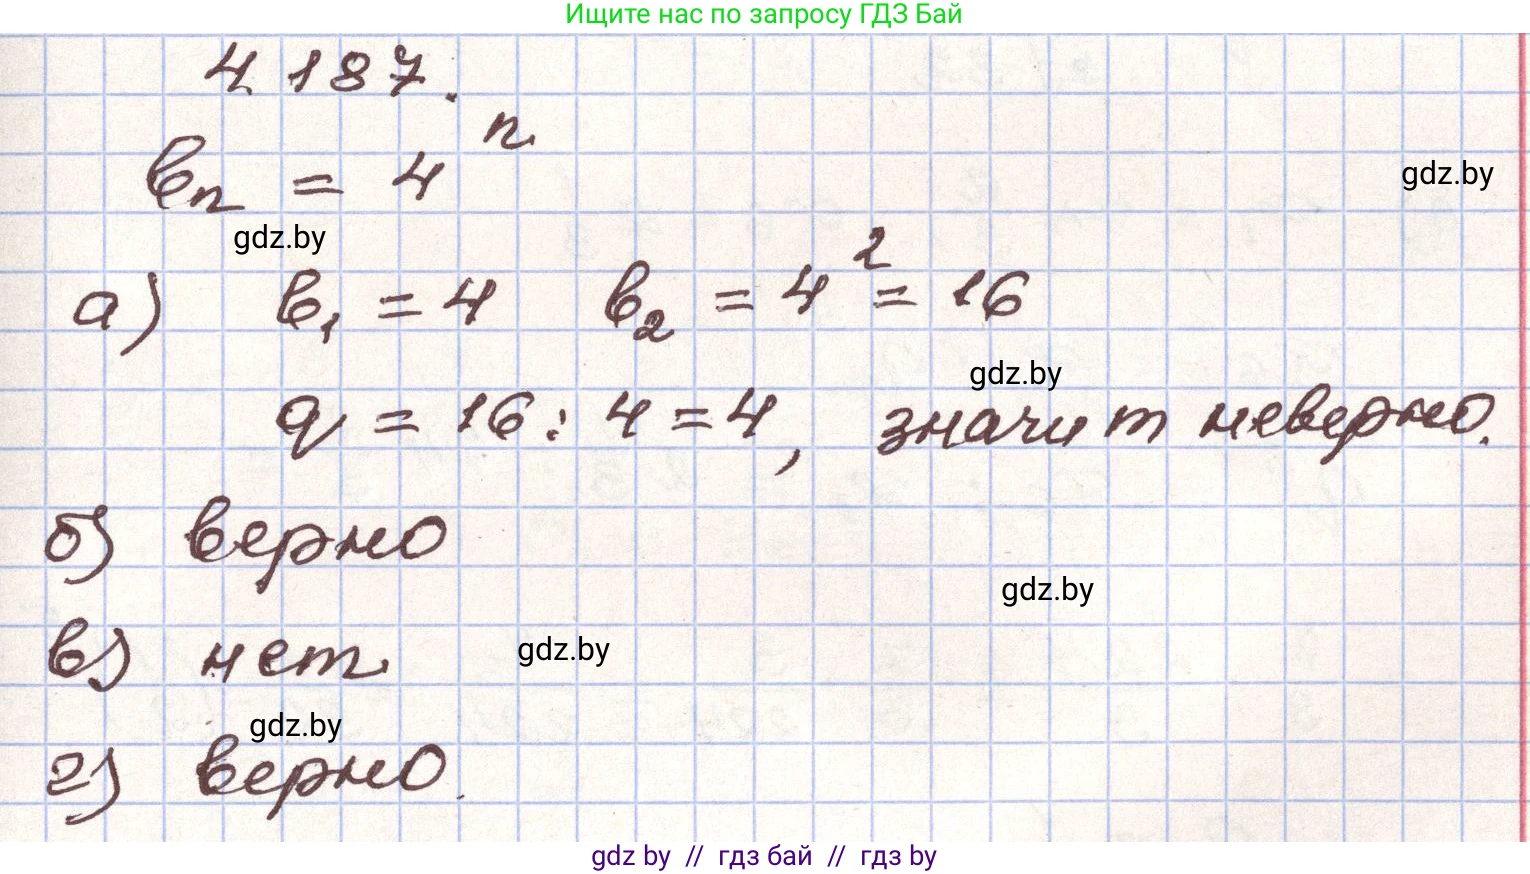 Ищите нас по запросу ГДЗ Бай
4.187.
bₙ = 4ⁿ
gdz.by
gdz.by
а) b₁ = 4 b₂ = 4² = 16
gdz.by
q = 16 : 4 = 4, значит неверно.
б) верно
gdz.by
в) нет
gdz.by
gdz.by
г) верно.
gdz by // гдз бай // гдз by